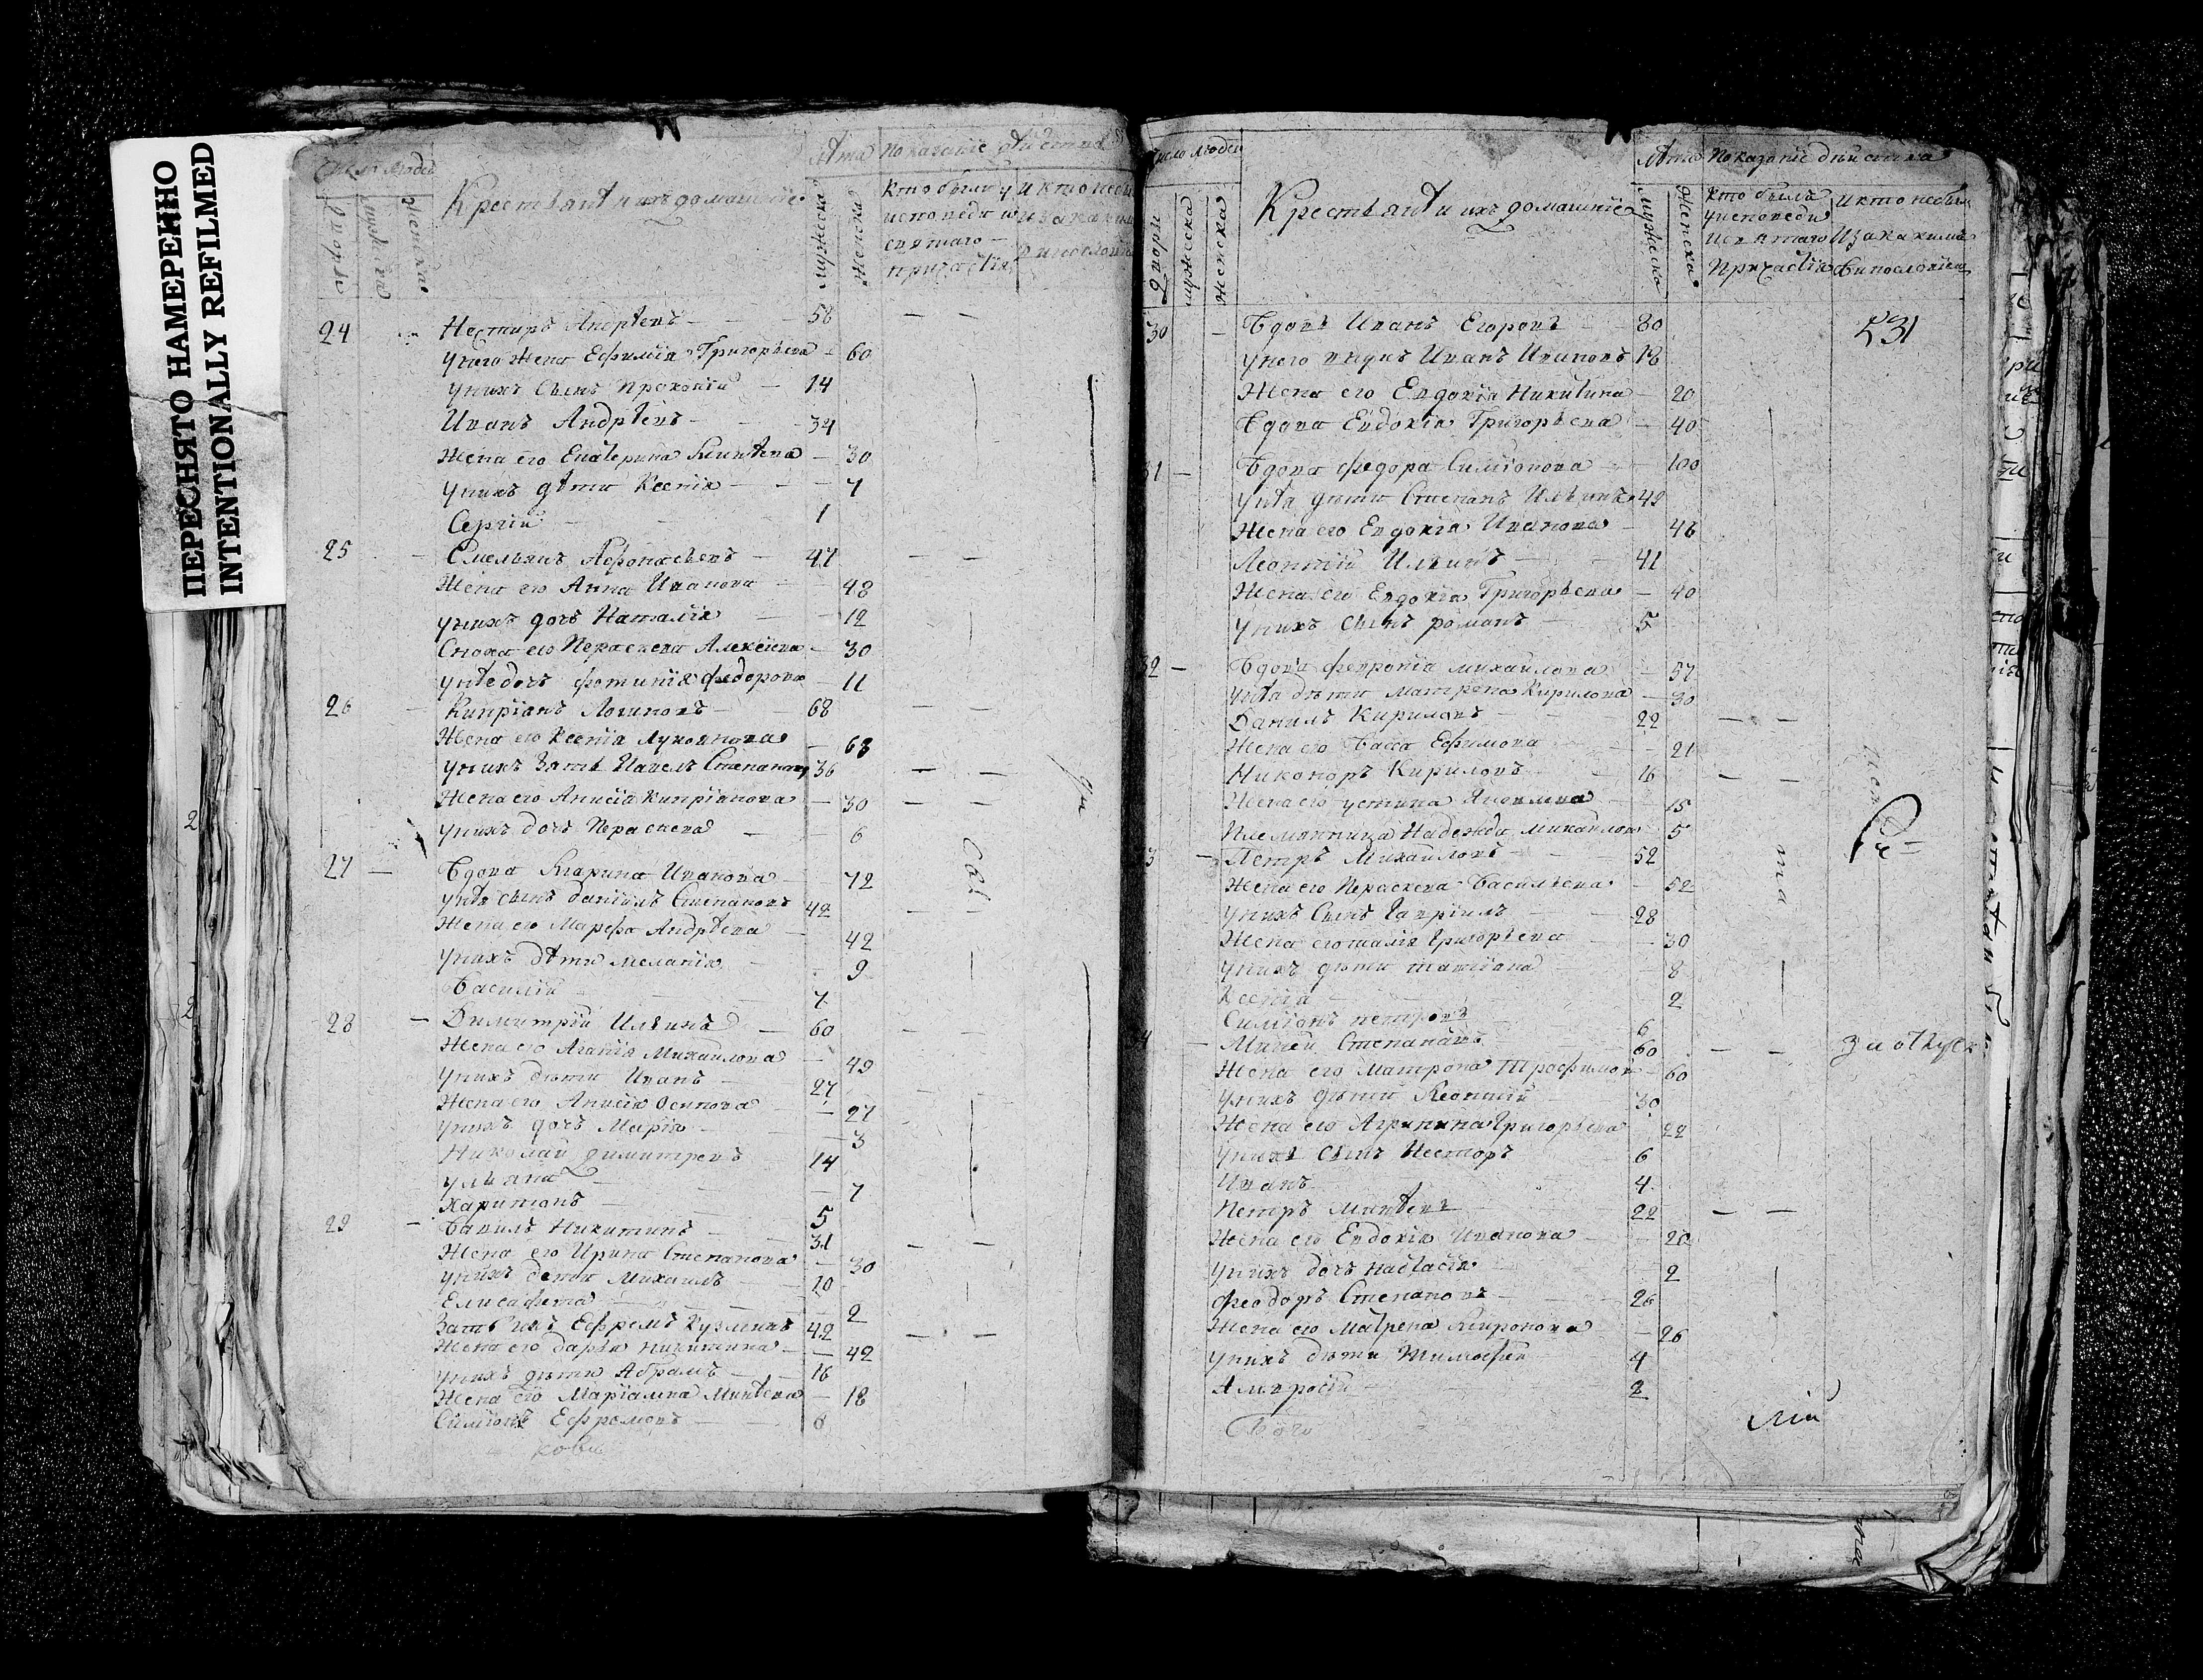 ПЕРЕСНЯТО НАМЕРЕННО
INTENTIONALLY REFILMED
Число людей
Лѣта Показаніе
Крестьянѣ и ихъ домашніе
мужеска
Женска
кто былъ у
исповѣди и
святаго
причастія
24 Нестиръ Андрѣевъ 58
у него Жена Ефимія Григорьева 60
у нихъ Сынъ Прокопій 14
Иванъ Андрѣевъ 34
Жена его Екатерина 30
у нихъ дѣти Ксенія 7
Сергій 1
25 Емельянъ Афонасьевъ 47
Жена его Анна Иванова 48
у нихъ дочь Наталія 12
Сноха его Пераскева Алексіева 30
у нѣе дочь Фотинія Федорова 11
26 Кипріанъ Логиновъ 68
Жена его Ксенія 68
у нихъ Зять Павелъ Степановъ 36
Жена его Анисія Кипріанова 30
у нихъ дочь Пераскева 6
27 Вдова Марина Иванова 72
у нѣя сынъ Даніилъ Степановъ 42
Жена его Марфа Андрѣева 42
у нихъ дѣти Меланія 9
Василій 7
28 Димитрій Ильинъ 60
Жена его Агапія Михайлова 49
у нихъ дѣти Иванъ 27
Жена его Анисія Осипова 27
у нихъ дочь Марія 3
Николай Димитревъ 14
Ульяна 7
Харитонъ 5
29 Вавилъ Никитинъ 31
Жена его Ирина Степанова 30
у нихъ дети Михаилъ 10
Елисафета 2
Зать ихъ Ефремъ Кузминъ 42
Жена его Дарья Никитина 42
у нихъ дѣти Абрамъ 16
Жена его Маріамна Минѣева 18
Симіонъ Ефремовъ 8
Число людей
Лѣта Показаніе дѣйства
Крестьянѣ и ихъ домашніе
Двори
мужеска
женска
мужеска
Женска
кто былъ
у исповеди
и святаго
Причастія
и кто небылъ
Иза какимъ
Винословіемъ
30 Вдовъ Иванъ Егоровъ 80
531
у него внукъ Иванъ Ивановъ 18
Жена его Евдокія Никитина 20
Вдова Евдокія Григорьева 40
31 Вдова Федора Симіонова 100
у нѣя дѣти Степанъ Ильинъ 49
Жена его Евдокія Иванова 46
Леонтій Ильинъ 41
Жена его Евдокія Григорьева 40
у нихъ сынъ романъ 5
32 Вдова Феврониа михайлова 57
у нѣя дѣти Матрена Кирилова 30
Данилъ Кириловъ 22
Жена его Васса Ефимова 21
Никоноръ Кириловъ 16
Жена его устина Яковлева 15
Племянница Надежда михайлова 5
3 Петръ Михайловъ 52
Жена его Пераскева Васильева 52
у нихъ Сынъ Гавріилъ 28
Жена его Григорьева 30
у нихъ дѣти татіана 8
Ксенія 2
Симіонъ петровъ 6
4 Миней Степановъ 60
Жена его Матрона Трофимова 60
у нихъ дѣти Леонтій 30
Жена его Агрипина Григорьева 22
у нихъ сынъ Несторъ 6
Иванъ 4
Петръ Минѣевъ 22
Жена его Евдокія Иванова 20
у нихъ дочь настасія 2
Феодоръ Степановъ 26
Жена его Матрена Миронова 26
у нихъ дѣти Тимофей 4
Амвросій 2
лій